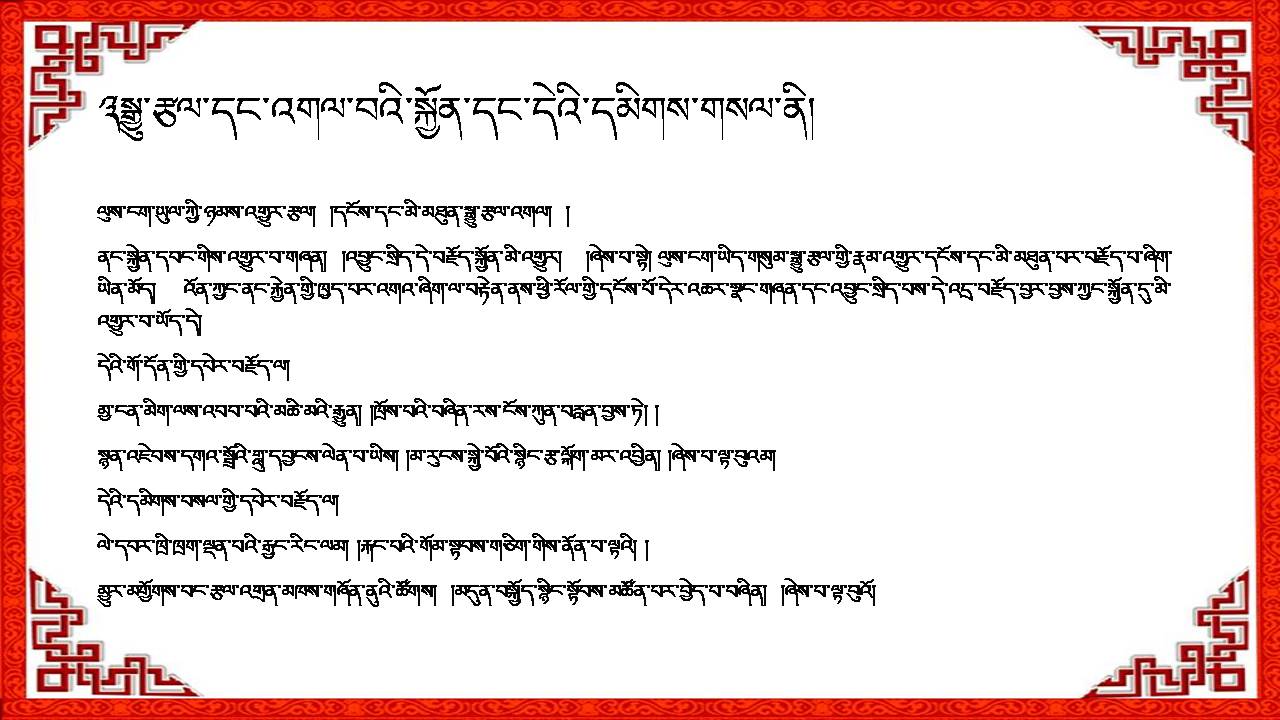 ༄སྒྱུ་རྩལ་དང་འགལ་བའི་སྐྱོན་དང་དེའི་དམིགས་གསལ་ནི།
ལུས་ངག་ཡུལ་ཀྱི་ཉམས་འགྱུར་རྩལ། །དངོས་དང་མི་མཐུན་སྒྱུ་རྩལ་འགལ། །
ནང་རྐྱེན་དབང་གིས་འགྱུར་བ་གཞན། །འབྱུང་སྲིད་དེ་བརྗོད་སྐྱོན་མི་འགྱུར། །ཞེས་པ་སྟེ། ལུས་ངག་ཡིད་གསུམ་སྒྱུ་རྩལ་གྱི་རྣམ་འགྱུར་དངོས་དང་མི་མཐུན་པར་བརྗོད་པ་ཞིག་
ཡིན་མོད། འོན་ཀྱང་ནང་རྐྱེན་གྱི་ཁྱད་པར་འགའ་ཞིག་ལ་བརྟེན་ནས་ཕྱི་རོལ་གྱི་དངོས་པོ་དེར་འཆར་སྣང་གཞན་དང་འབྱུང་སྲིད་པས་དེ་འདྲ་བརྗོད་བྱར་བྱས་ཀྱང་སྐྱོན་དུ་མི་
འགྱུར་བ་ཡོད་དེ།
དེའི་གོ་དོན་གྱི་དཔེར་བརྗོད་ལ།
མྱ་ངན་མིག་ལས་འབབ་པའི་མཆི་མའི་རྒྱུན། །ཁྲོས་པའི་བཞིན་རས་ངོས་ཀུན་བརླན་བྱས་ཏེ། །
སྙན་འཇེབས་དགའ་སྤྲོའི་གླུ་དབྱངས་ལེན་པ་ཡིས། །མ་རུངས་སྐྱེ་བོའི་སྙིང་རྩ་ལྐོག་མར་འབྱིན། །ཞེས་པ་ལྟ་བུའམ།
དེའི་དམིགས་བསལ་གྱི་དཔེར་བརྗོད་ལ།
ལེ་དབར་ཁྲི་ཁྲག་ལྡན་པའི་རྒྱང་རིང་ལམ། །རྐང་པའི་གོམ་སྟབས་གཅིག་གིས་ནོན་པ་ལྟའི། །
མྱུར་མགྱོགས་བང་རྩལ་འགྲན་མཁས་གཞོན་ནུའི་ཚོགས། །མདུན་བསྐྱོད་སྙིང་སྟོབས་མཚོན་པར་བྱེད་པ་བཞིན། །ཞེས་པ་ལྟ་བུའོ།